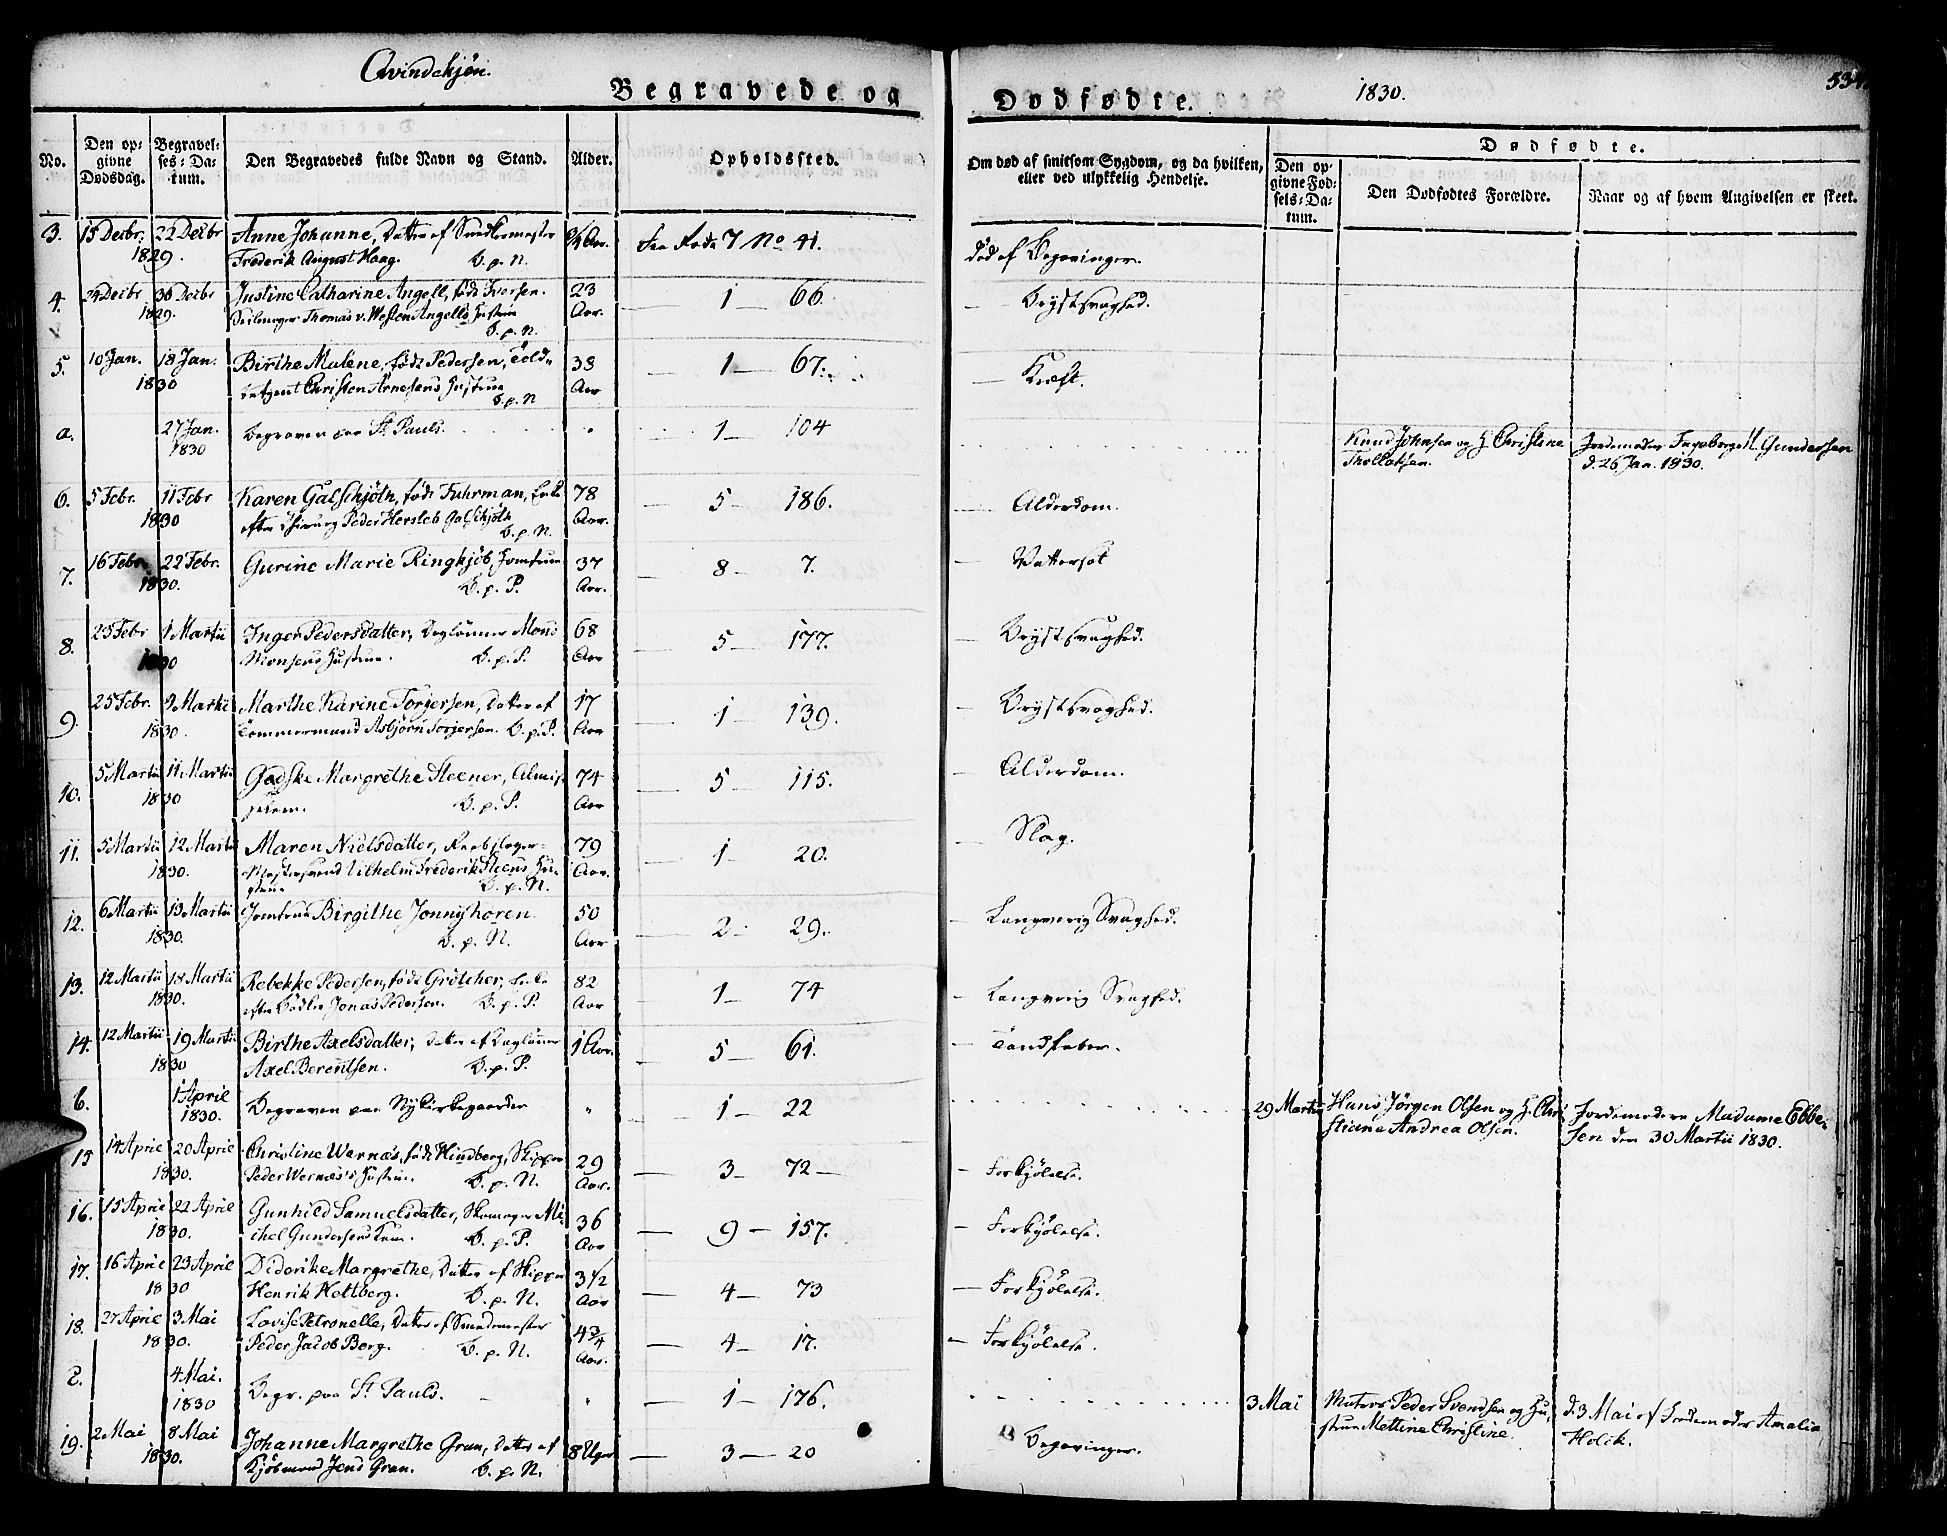 Qvindekjøn.
Begravede og Dødfødte. 1830. 534
No.
Den opgivne Dødsdag.
Begravelses-Datum.
Den Begravedes fulde Navn og Stand.
Alder.
Opholdssted.
Om død af smitsom Sygdom, og da hvilken, eller ved ulykkelig Hendelse.
Dødfødte.
Den opgivne Fødsels-Datum.
Den Dødfødtes Forældre.
Naar og af hvem Angivelsen er skeet.
3. 15 Decbr. 22 Decbr Anne Johanne, Datter af Snedkermester 3/4 Aar. Fra Rode 7 No 41. død af Begavinger.
1829. Frederik August Haag. B. p. N.
4. 24 Decbr 30 Decbr Justine Catharine Angell, født Iversen. 23 — 1 — 66. — Brystsvaghed.
1829. Seilmager Thomas v. Westen Angells Hustru Aar.
B. p. N.
5. 10 Jan. 18 Jan. Birthe Malene, født Pedersen, Told- 38 — 1 — 67. — Kræft.
1830 betjent Christen Arnesens Hustrue Aar
B. p. N
a. 27 Jan. Begraven paa St. Pauls. " 1 — 104 Knud Johnsen og H. Christine Jordemoder Ingeborg M. Gundersen
1830 Thollaksen. d. 26 Jan. 1830.
6. 5 Febr. 11 Febr Karen Galschjøth, født Fuhrman, Enke 78 — 5 — 186. — Alderdom.
1830 efter Chirurg Peder Hersleb Galschjøth Aar.
B. p. N.
7. 16 Febr. 22 Febr. Gurine Marie Ringkjøb, Jomfrue 37 — 8 — 7. — Vattersot
1830. B. p. P. Aar.
8. 23 Febr 1 Martii Inger Pedersdatter, Daglønner Mons 68 — 5 — 177. — Brystsvaghed.
1830 Monsens Hustrue. B. p. P. Aar
9. 25 Febr. 3 Martii Marthe Karine Torjersen, Datter af 17 — 1 — 139. — Brystsvaghed.
1830. Tømmermand Asbjørn Torjersen. B. p. P. Aar
10. 5 Martii 11 Martii Gedske Margrethe Steener, Almis- 74 — 5 — 115. — Alderdom.
1830 B. p. P. Aar
11. 5 Martii 12 Martii Maren Nielsdatter, Reebslager- 79 — 1 — 20. — Slag.
1830. Mestersvend Vilhelm Frederik Steens Hu- Aar.
strue B. p. N.
12. 6 Martii 13 Martii Jomfrue Birgithe Jonnyhoren 50 — 2 — 29. — Langvarig Svaghed.
1830. B. p. N. Aar
13. 12 Martii 18 Martii Rebekke Pedersen, født Grøtcher, Enke 82 — 1 — 74 — Langvarig Svaghed.
1830. efter Bødker Jonas Pedersen. B. p. P. Aar
14. 12 Martii 19 Martii Birthe Axelsdatter, Datter af Dagløner 1 Aar. — 5 — 61. — Tandfeber.
1830 Axel Berentsen. B. p. P.
b. 1 April Begraven paa Nykirkegaarden " — 1 — 22 29 Martii Hans Jørgen Olsen og H. Chri- Jordemoder Madame Ebbe-
1830. stiane Andrea Olsen. sen den 30 Martii 1830.
15 14 April 20 April Christine Wernæs, født Hindberg, Skipper 29 — 3 — 72 — — Forkjølelse.
1830. Peder Wernæs's Hustrue. B. p. N. Aar.
16. 15 April 22 April Gunhild Samuelsdatter, Skomager Mi- 36 — 9 — 157. — Forkjølelse.
1830. chel Gundersens Kone. B. p. P. Aar
17. 16 April 23 April Diderikke Margrethe, Datter af Skipper 3 1/2 — 4 — 73 — Forkjølelse.
1830 Henrik Hettberg. B. p. N. Aar
18. 27 April 3 Mai Lovise Petronelle, Datter af Smedemester 4 3/4 — 4 — 17. — Forkjølelse.
1830. Peder Jacob Berg. B. p. N. Aar.
c. 4 Mai. Begr. paa St. Pauls. " — 1 — 176. 3 Mai Matros Peder Svendsen og Hu- d. 3 Mai af Jordemoder Amalia
1830 strue Mettine Christine. Holck.
19. 2 Mai 8 Mai Johanne Margrethe Gran, Datter af 8 Uger — 3 — 20 Begavinger.
1830. Kjøbmand Jens Gran. B. p. N.